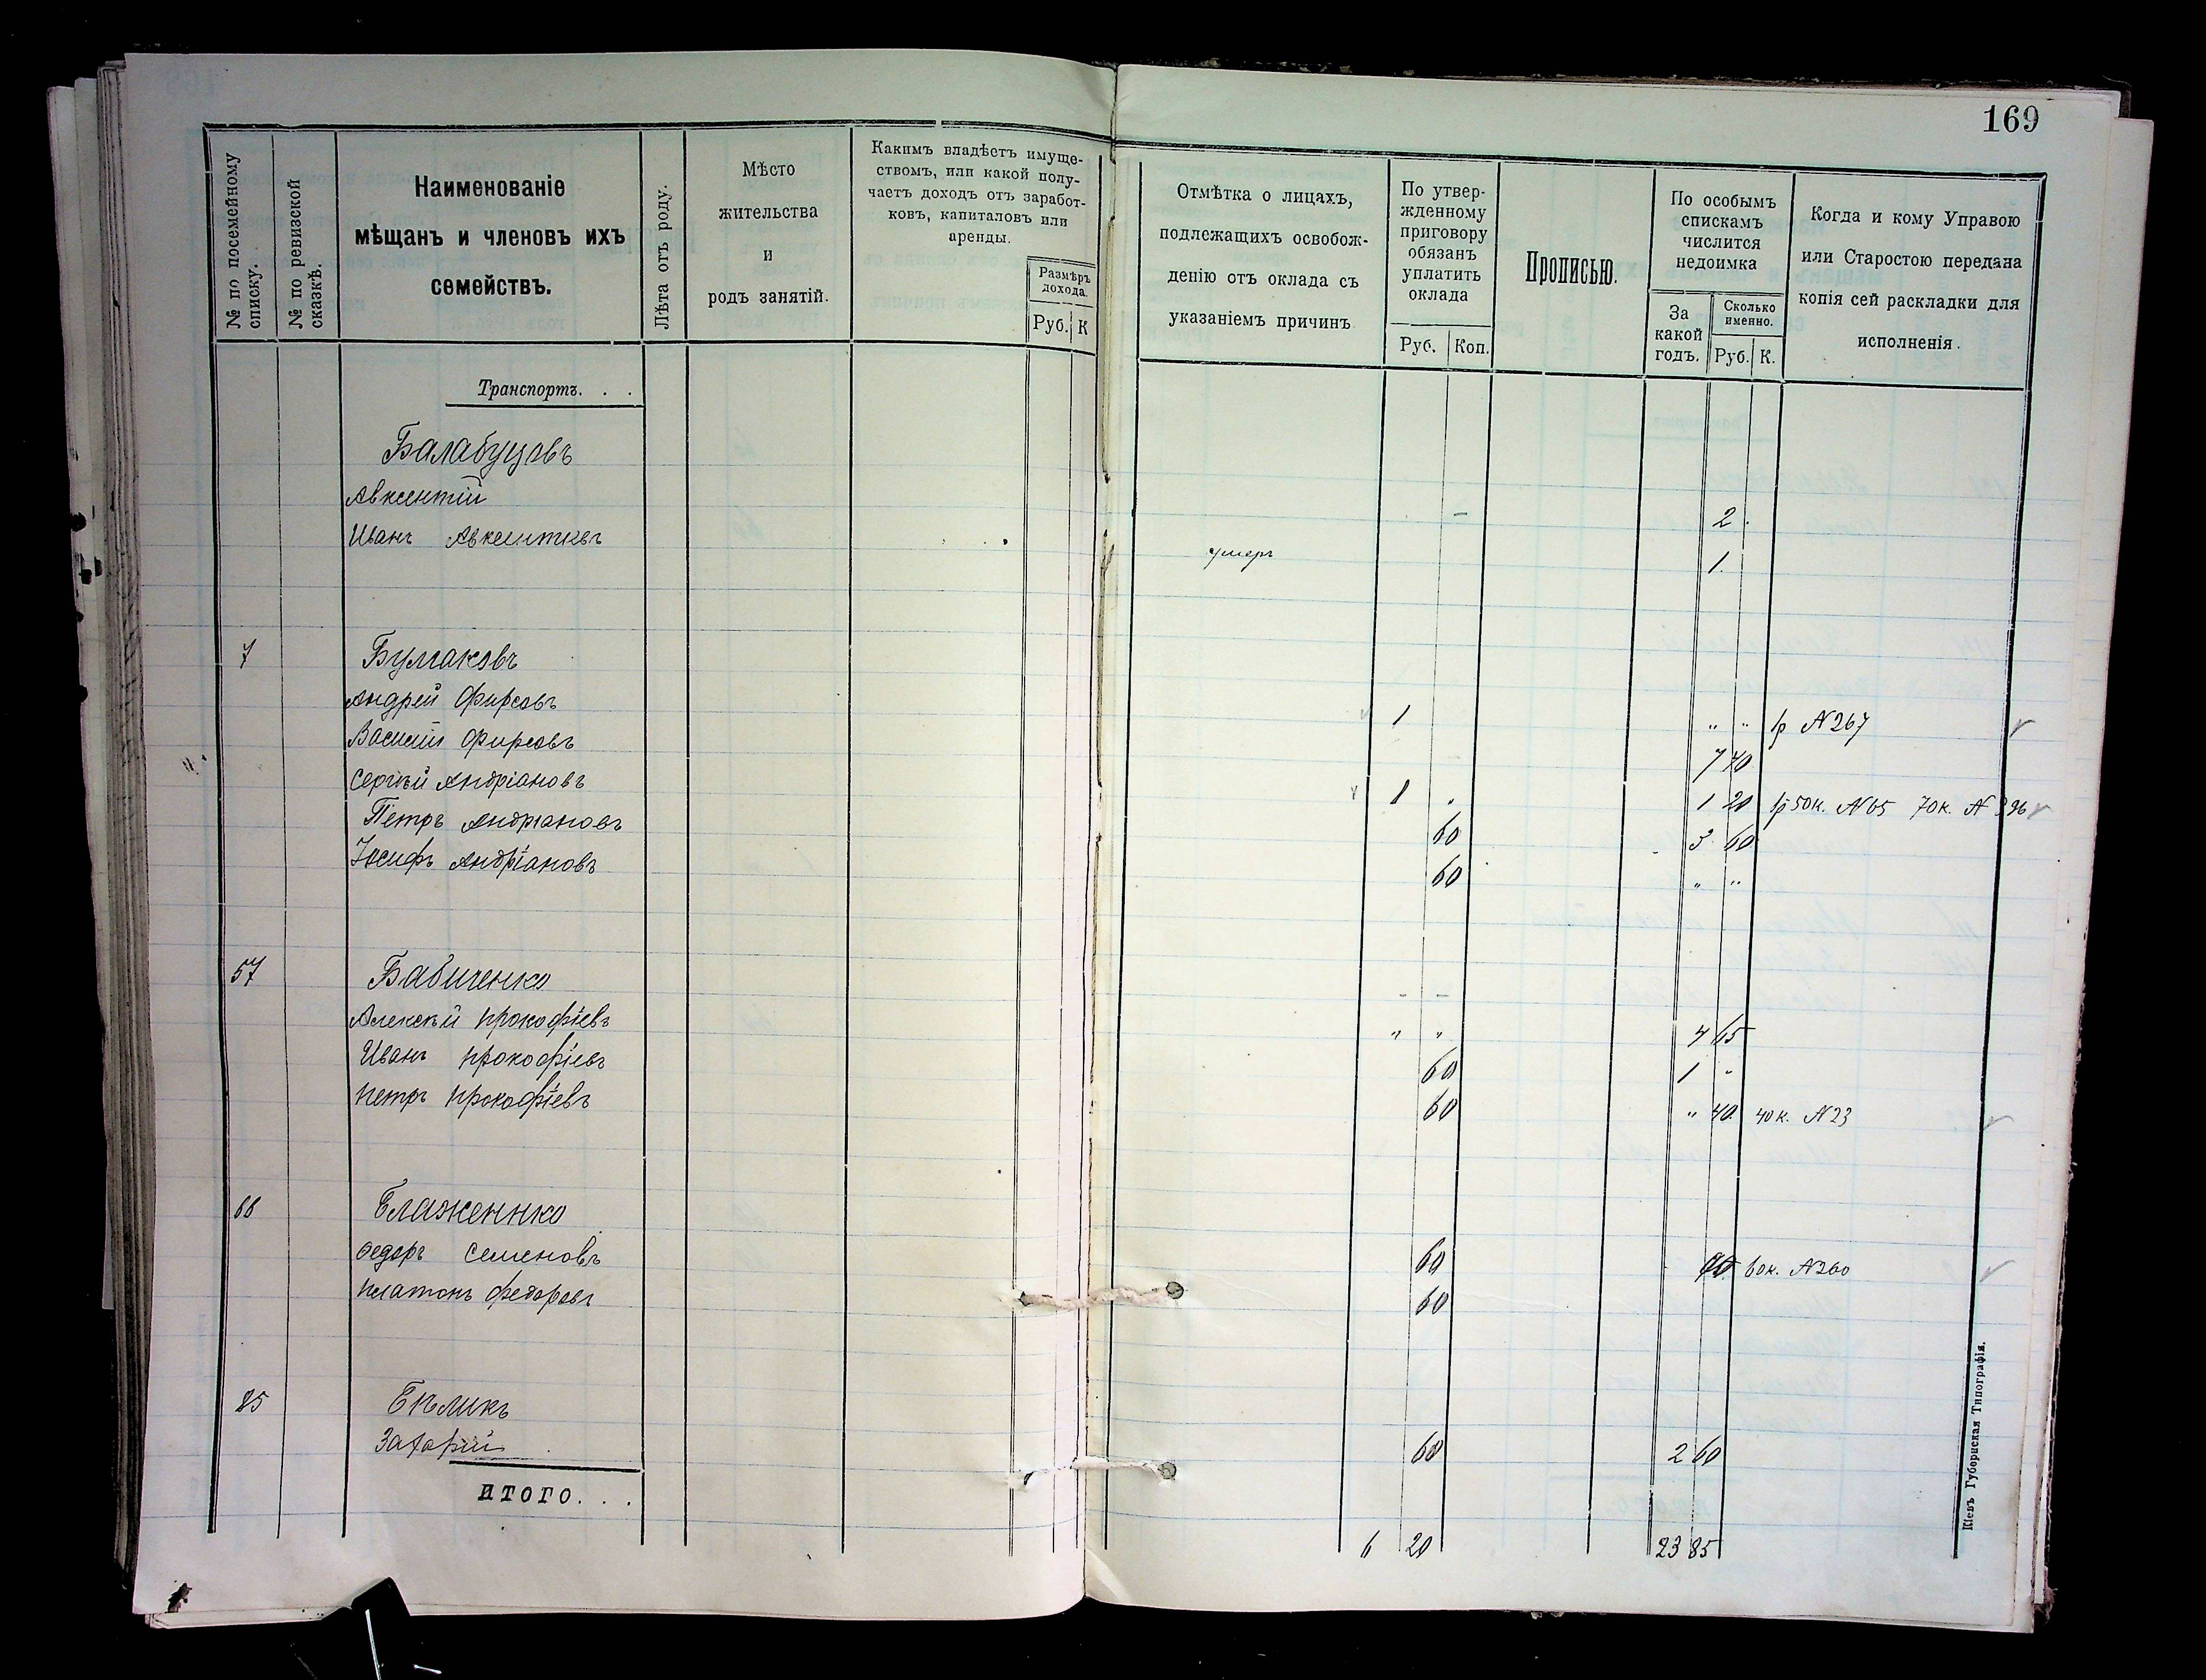 169
№ по посемейному списку.
№ по ревизской сказкѣ.
Наименованіе
мѣщанъ и членовъ ихъ
семействъ.
Лѣта отъ роду.
Мѣсто
жительства
и
родъ занятій.
Какимъ владѣетъ имуще-
ствомъ, или какой полу-
чаетъ доходъ отъ заработ-
ковъ, капиталовъ или
аренды.
Размѣръ
дохода.
Руб. К
Отмѣтка о лицахъ,
подлежащихъ освобож-
денію отъ оклада съ
указаніемъ причинъ
По утвер-
жденному
приговору
обязанъ
уплатить
оклада
Руб. Коп.
Прописью.
По особымъ
спискамъ
числится
недоимка
За
какой
годъ.
Сколько
именно.
Руб. К.
Когда и кому Управою
или Старостою передана
копія сей раскладки для
исполненія.
Транспортъ. . .
Балабуцовъ
Авксентій - 2.
Иванъ Авксентіевъ умеръ 1.
7 Булаковъ
Андрей Фирсовъ 1 " " 1р N267
Василій Фирсовъ 7 70
Сергѣй Андріановъ 1 " 1 20 1р 50к. N65 70к. N 396
Петръ Андріановъ 60 3 60
Іосифъ Андріановъ 60 " "
57 Бабиченко - -
Алексѣй Прокофіевъ " " 4 65
Иванъ Прокофіевъ 60 1 "
Петръ Прокофіевъ 60 " 40 40к. N23
66 Блаженнко
Федоръ Семеновъ 60 60к. N260
Платонъ Федоровъ 60
85 Бѣликъ
Захарій 60 2 60
ИТОГО. . .
6 20 23 85
Кіевъ Губернская Типографія.